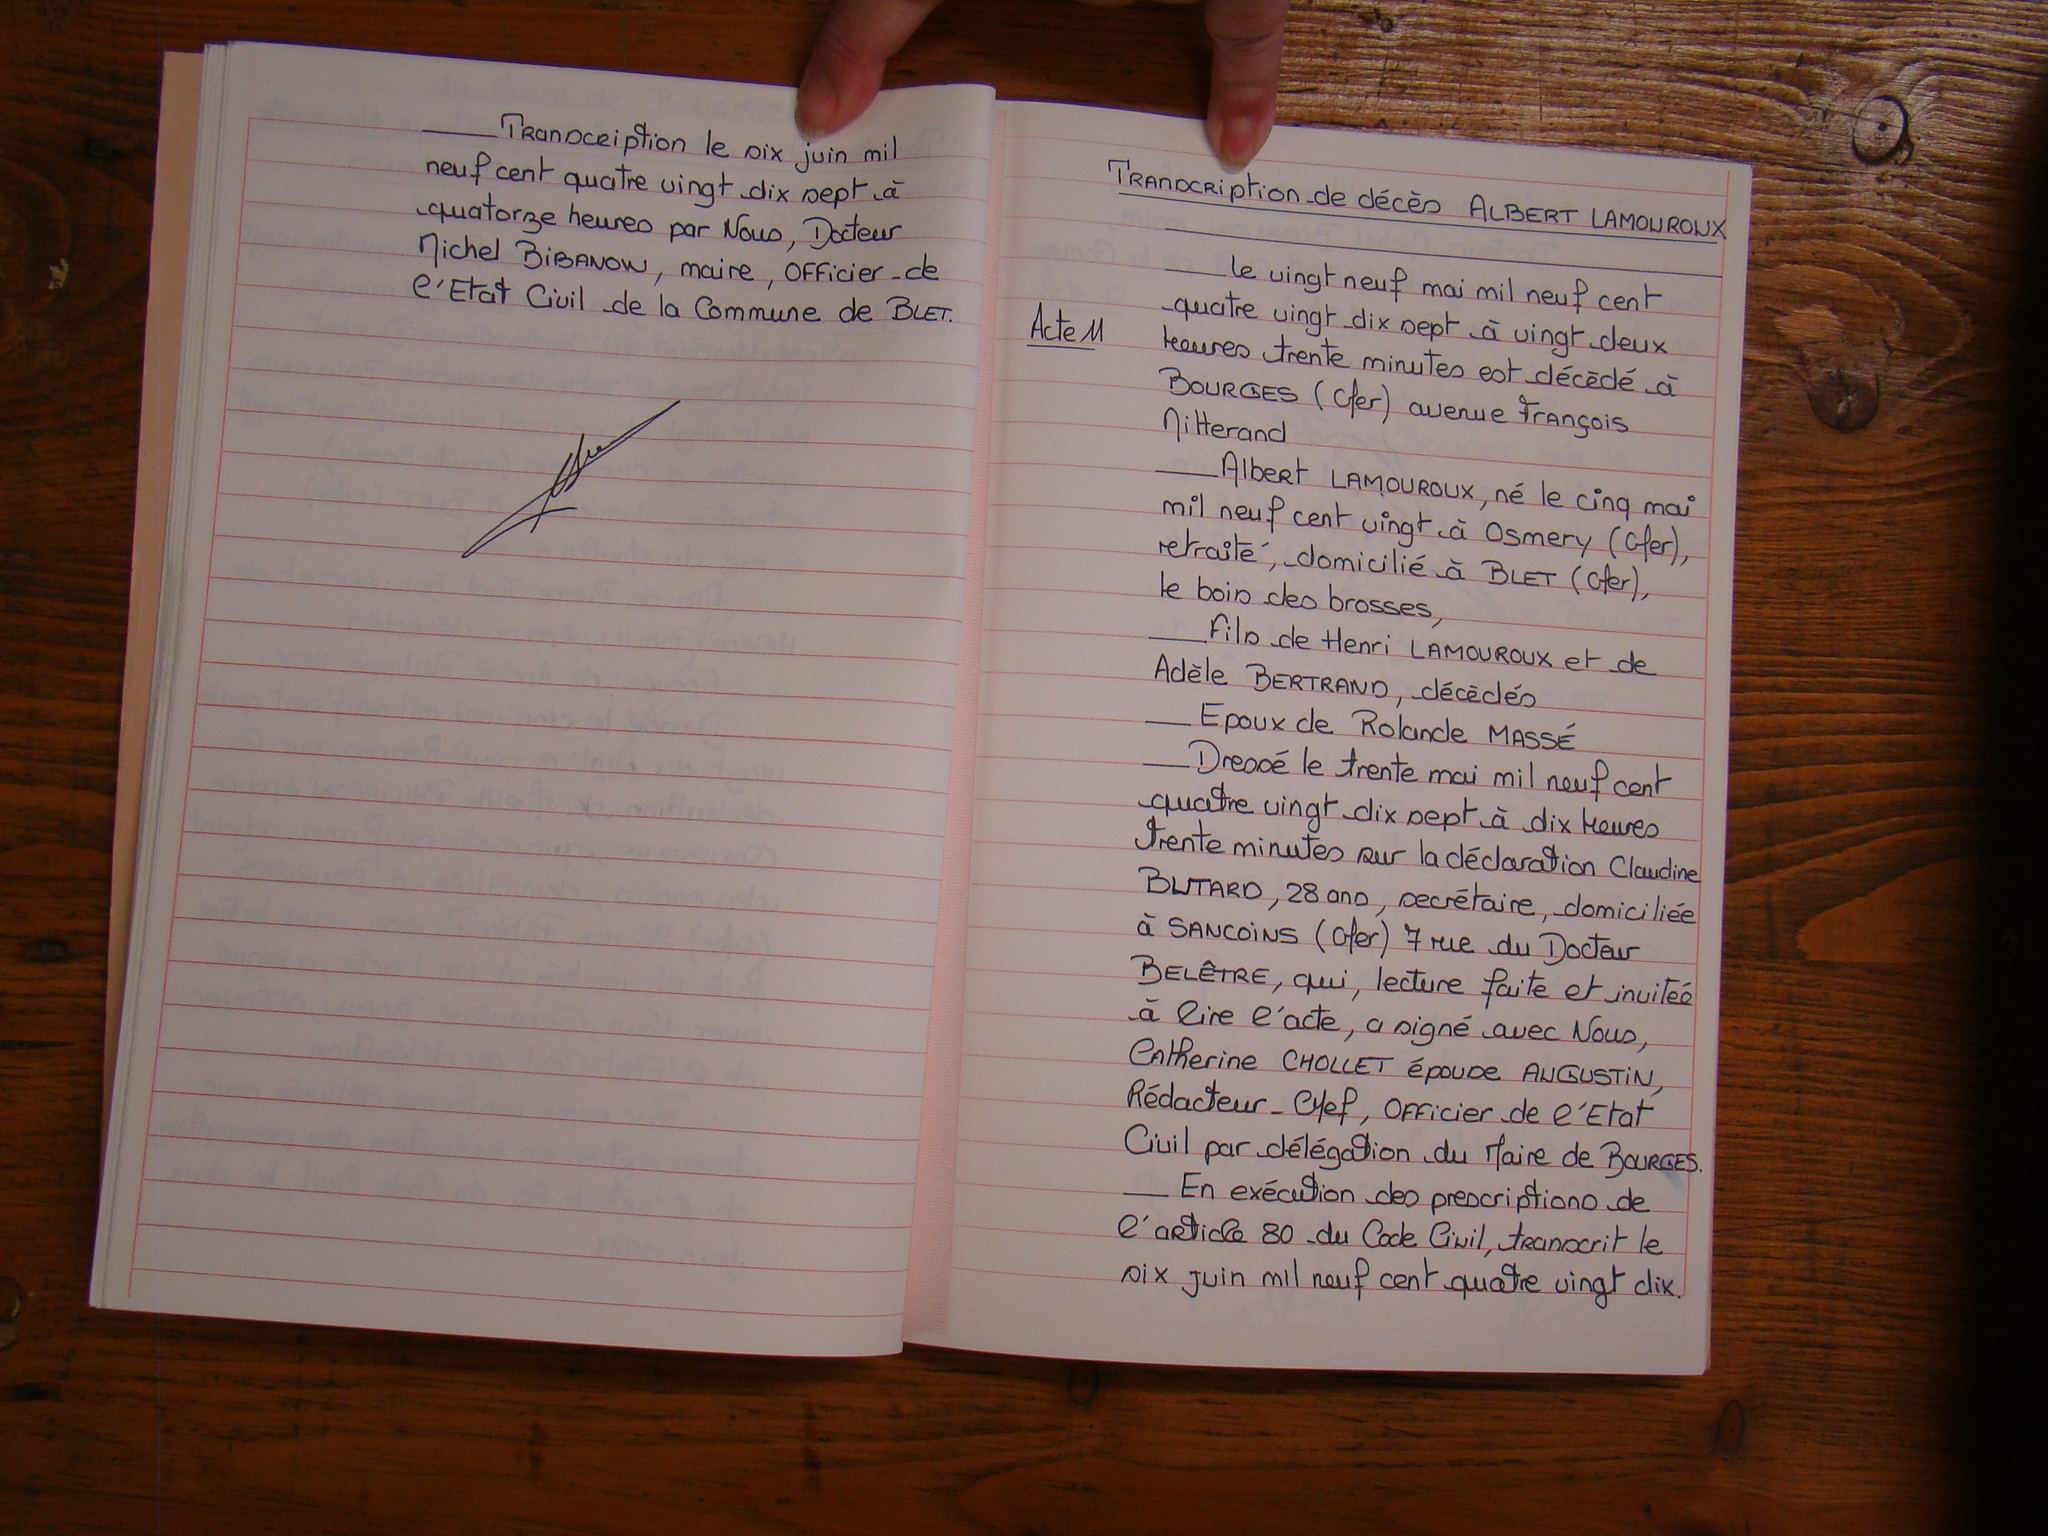 Transcription le six juin mil
neuf cent quatre vingt dix sept à
quatorze heures par Nous, Docteur
Michel BIBANOW, maire, Officier de
l'Etat Civil de la Commune de BLET.
Transcription de décès ALBERT LAMOUROUX
le vingt neuf mai mil neuf cent
quatre vingt dix sept à vingt deux
Acte 11
heures trente minutes est décèdé à
BOURGES (Cher) avenue François
Mitterand
Albert LAMOUROUX, né le cinq mai
mil neuf cent vingt à Osmery (Cher),
retraité, domicilié à BLET (Cher),
le bois des brosses,
fils de Henri LAMOUROUX et de
Adèle BERTRAND, décèdés
Epoux de Rolande MASSÉ
Dressé le trente mai mil neuf cent
quatre vingt dix sept à dix heures
trente minutes sur la déclaration Claudine
BUTARD, 28 ans, secrétaire, domiciliée
à SANCOINS (Cher) 7 rue du Docteur
BELÊTRE, qui, lecture faite et invitée
à lire l'acte, a signé avec Nous,
Catherine CHOLLET épouse AUGUSTIN,
Rédacteur-Chef, Officier de l'Etat
Civil par délégation du Maire de BOURGES.
En exécution des prescriptions de
l'article 80 du Code Civil, transcrit le
six juin mil neuf cent quatre vingt dix.